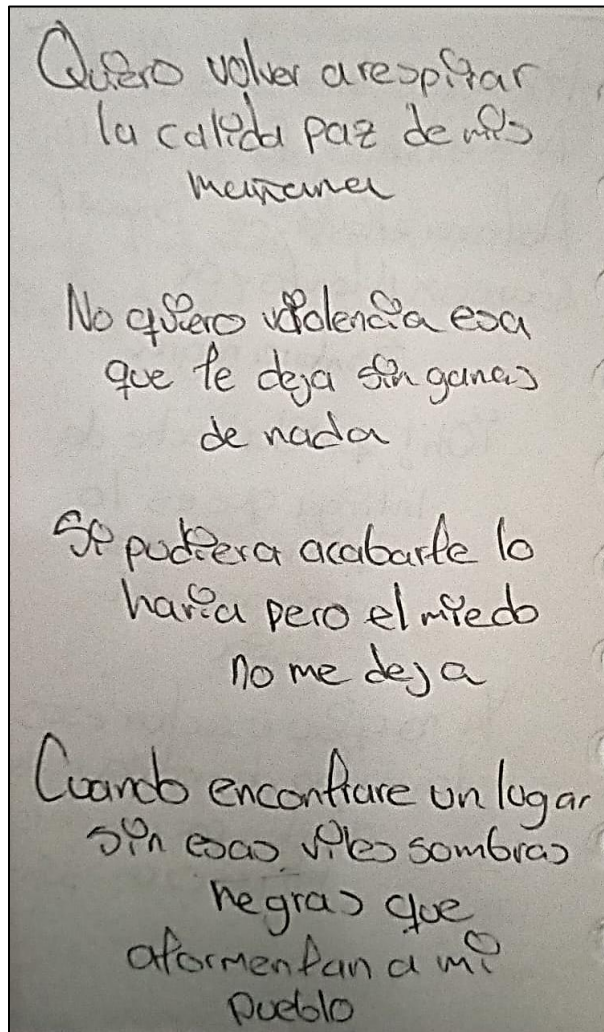 Quiero volver a respirar
la calida paz de mis
mañana
No quiero violencia esa
que te deja sin ganas
de nada
Si pudiera acabarte lo
haria pero el miedo
no me deja
Cuando encontrare un lugar
sin esas viles sombras
negras que
atormentan a mi
pueblo